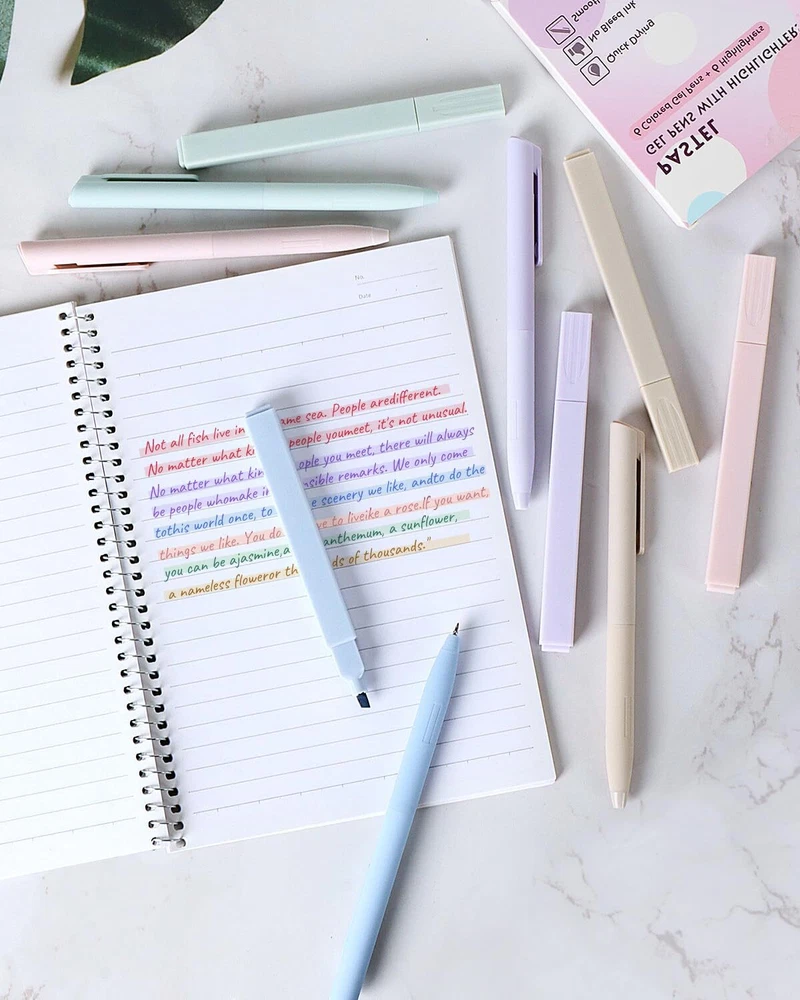 Smooth
No Bleed Ink
Quick Drying
6 Colored Gel Pens + 6 Highlighters
GEL PENS WITH HIGHLIGHTER
PASTEL
No.
Date
Not all fish live in ame sea. People aredifferent.
No matter what k people youmeet, it's not unusual.
No matter what kin ople you meet, there will always
be people whomake in nsible remarks. We only come
tothis world once, to e scenery we like, andto do the
things we like. You do ve to liveike a rose.If you want,
you can be ajasmine,a anthemum, a sunflower,
a nameless floweror th ds of thousands."